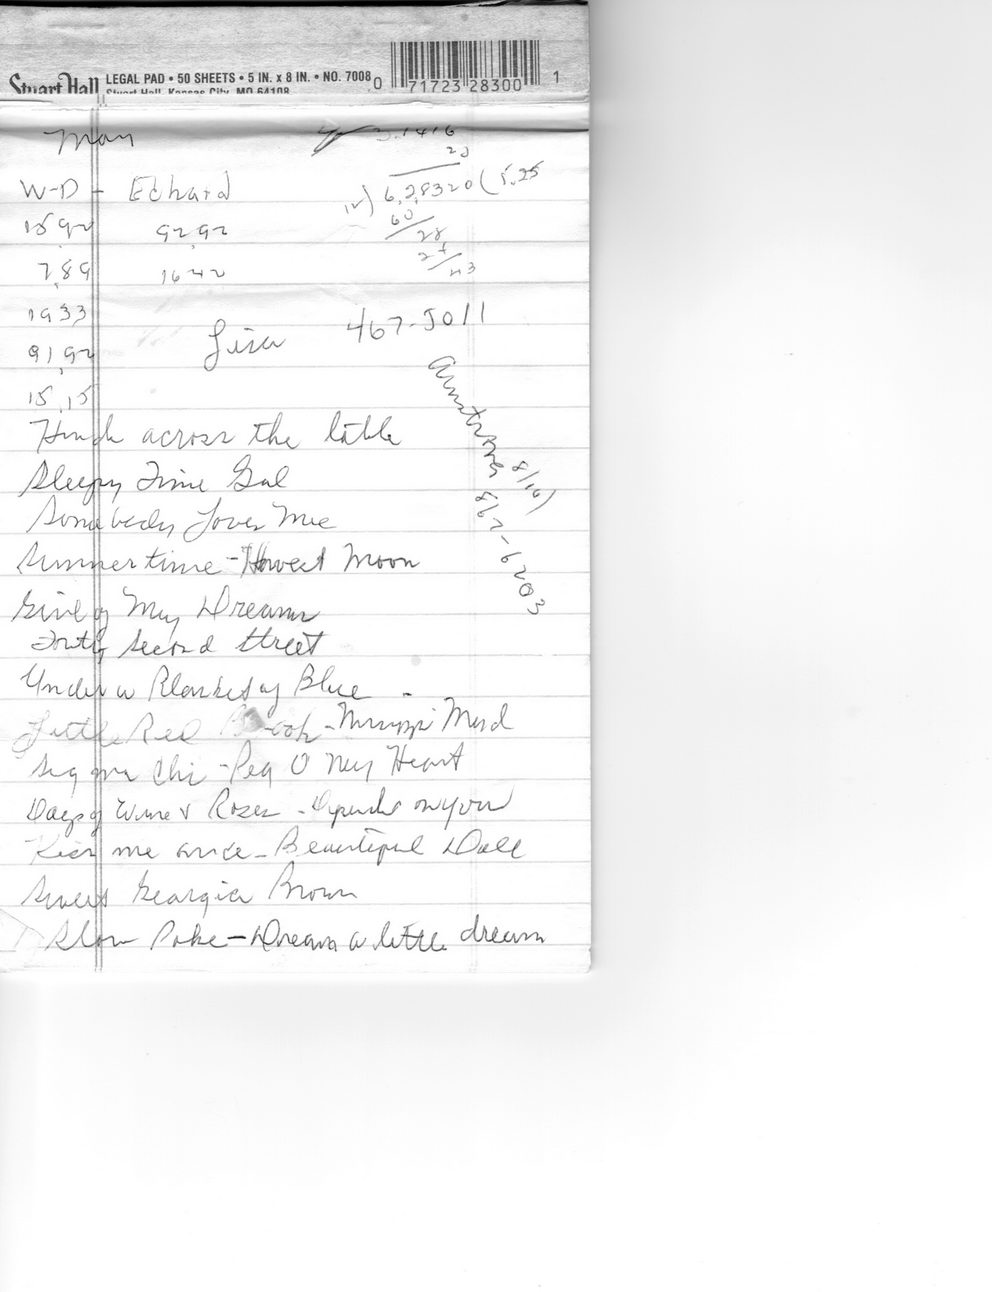 Stuart Hall LEGAL PAD • 50 SHEETS • 5 IN. x 8 IN. • NO. 7008
Stuart Hall, Kansas City, MO 64108
0 71723 28300 1
Mon
3.1416
20
W-D - Echard
12) 6.28320 ( 5.25
60
1592
9292
28
24
43
789
1642
1933
Lisa 467-5011
9192
15.15
Armstrong 8/16)
892-6203
Hands across the table
Sleepy Time Gal
Somebody Loves Me
Summertime - Harvest Moon
Girl of My Dreams
Forty Second Street
Under a Blanket of Blue -
Little Red Book - Mississippi Mud
Sigma Chi - Peg O My Heart
Days of Wine & Roses - Depends on you
Kiss me once - Beautiful Doll
Sweet Georgia Brown
Slow Poke - Dream a little dream